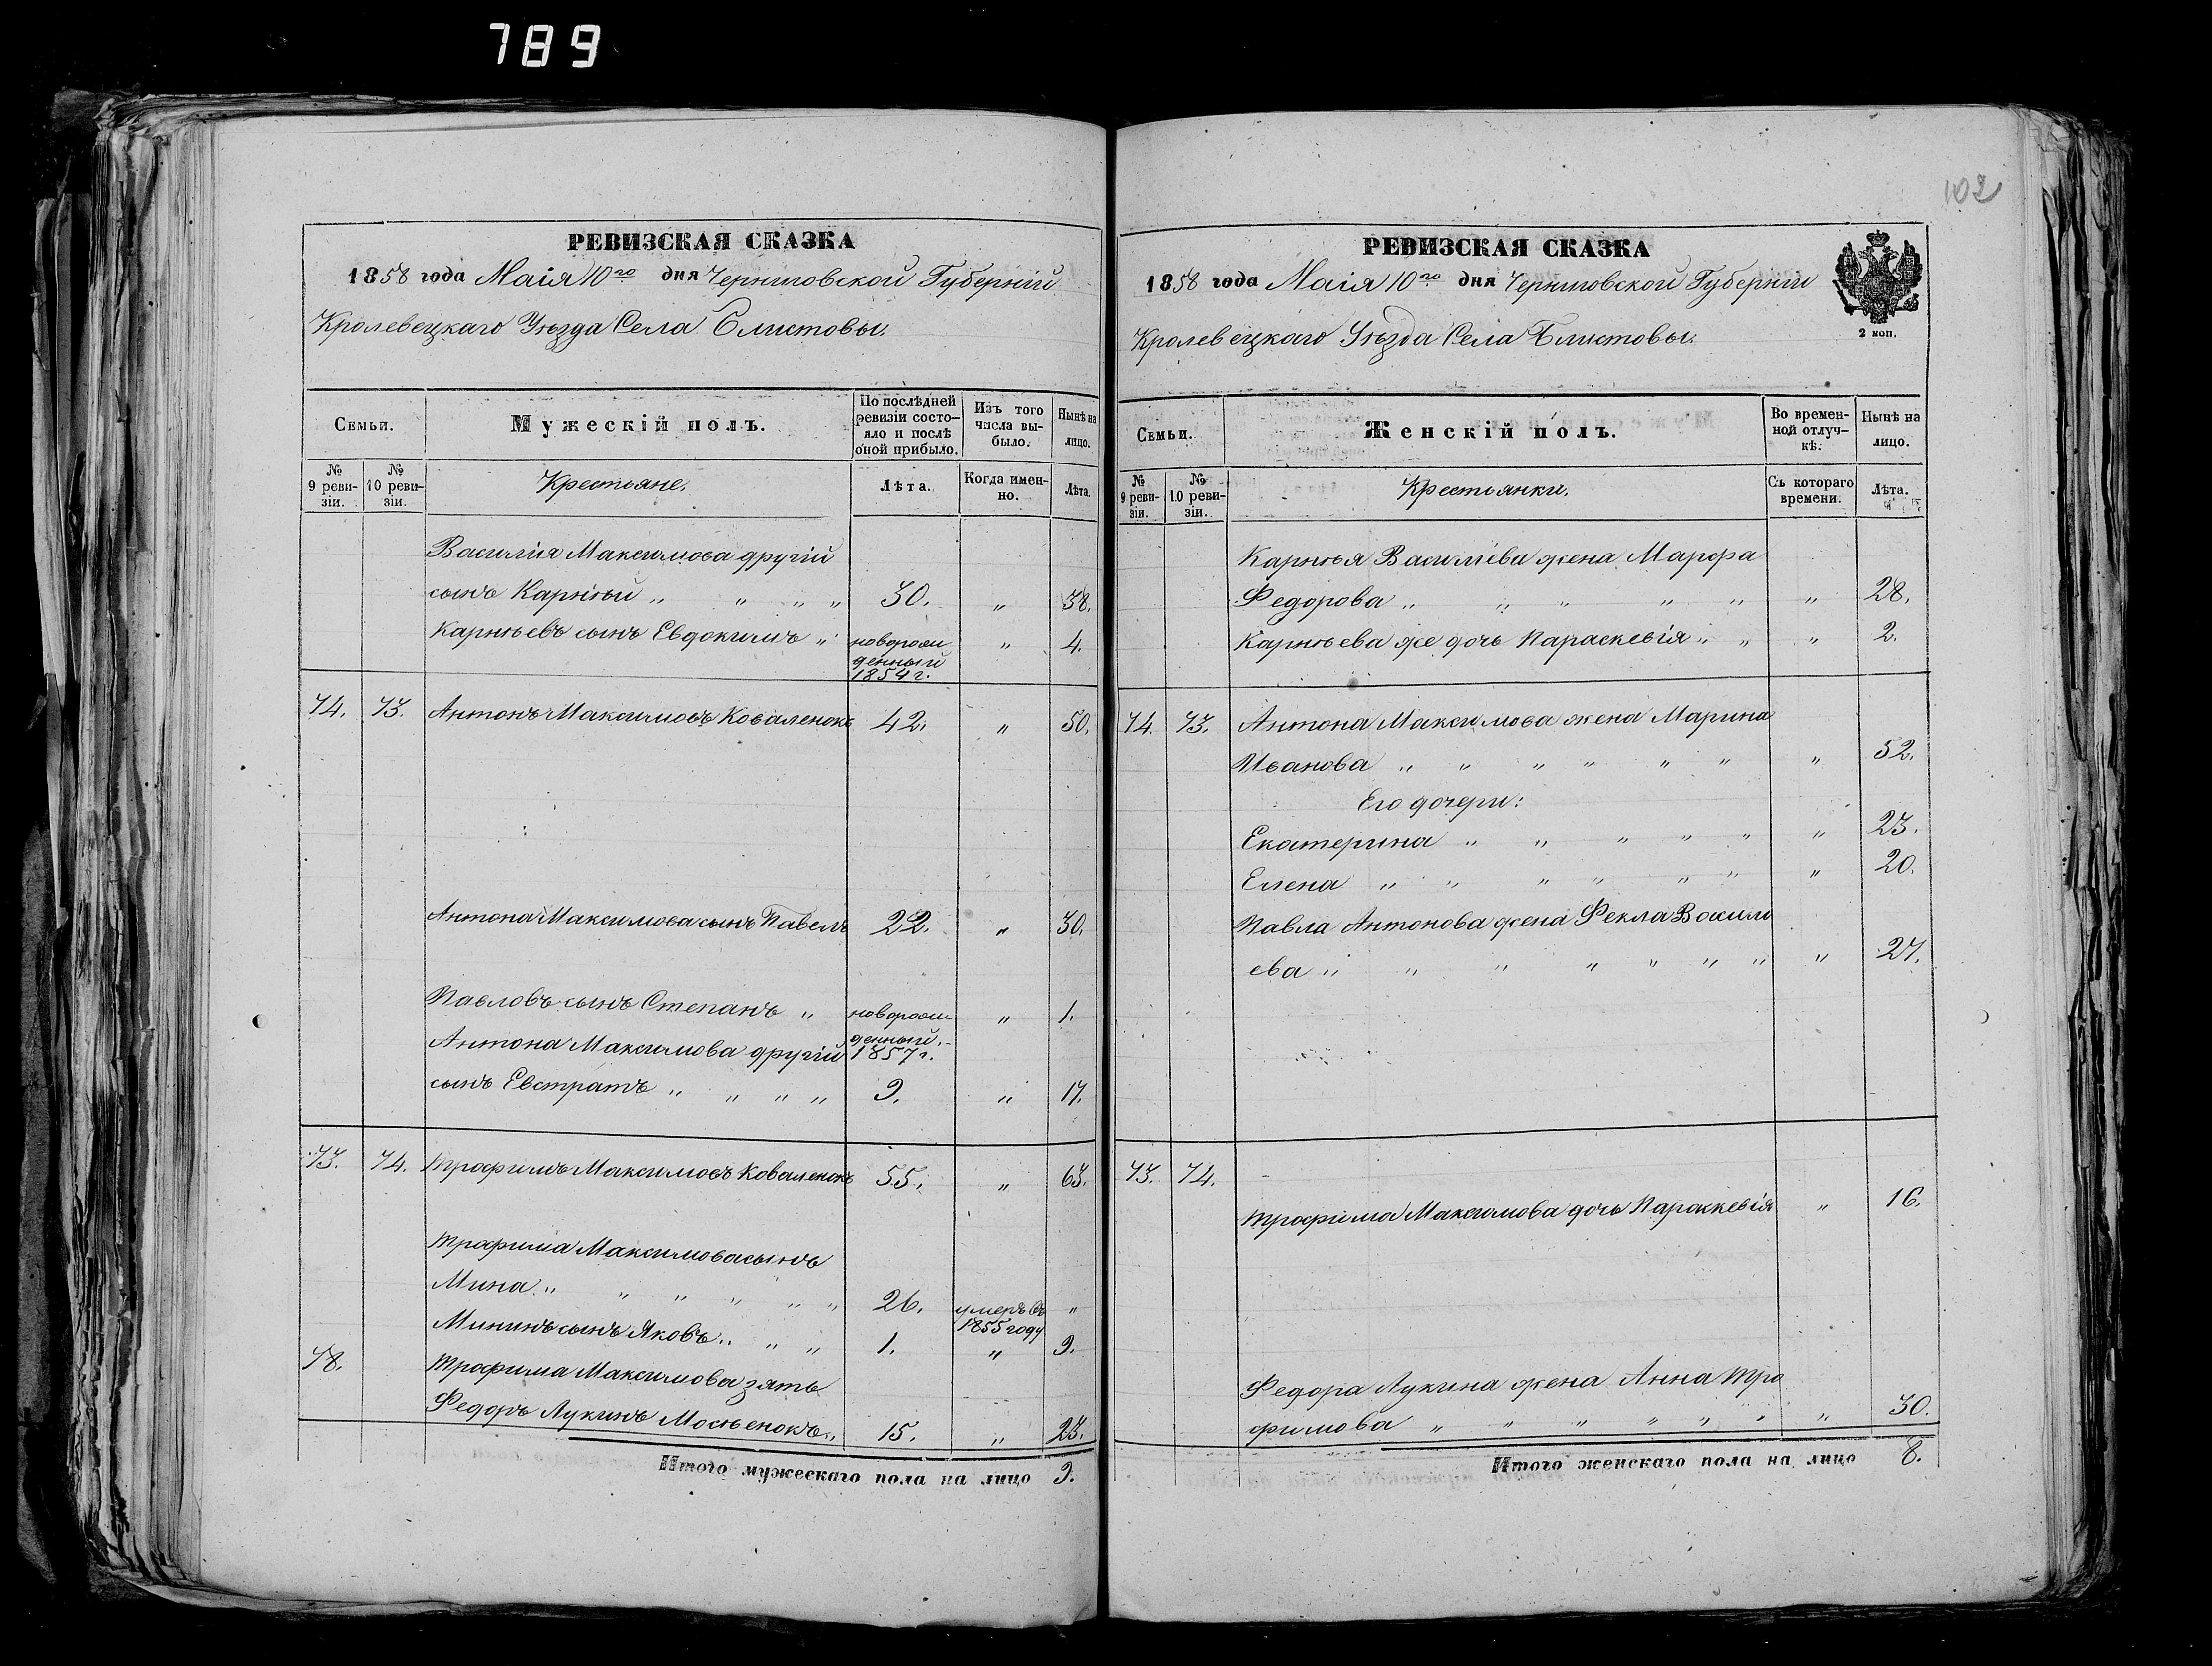 789
102
РЕВИЗСКАЯ СКАЗКА
1858 года Маія 10го дня Черниговской Губерніи
Кролевецкаго Уѣзда Села Блистовы.
Семьи.
Мужескій полъ.
По послѣдней ревизіи состояло и послѣ оной прибыло.
Изъ того числа выбыло.
Нынѣ на лицо.
№ 9 ревизіи.
№ 10 ревизіи.
Крестьяне.
Лѣта.
Когда именно.
Лѣта.
Василія Максимова другій
сынъ Карнѣй „ „ „ „ 30. „ 38.
Карнѣевъ сынъ Евдокимъ „ новорожденный 1854 г. „ 4.
74. 73. Антонъ Максимовъ Коваленокъ 42. „ 50.
Антона Максимова сынъ Павелъ 22. „ 30.
Павловъ сынъ Степанъ „ новорожденный 1857 г. „ 1.
Антона Максимова другій
сынъ Евстратъ „ „ „ „ 9. „ 17.
73. 74. Трофимъ Максимовъ Коваленокъ 55. „ 63.
Трофима Максимова сынъ
Мина „ „ „ „ „ „ 26. умеръ въ 1855 году „
Мининъ сынъ Яковъ „ „ „ 1. „ 9.
78. Трофима Максимова зять
Федоръ Лукинъ Мосѣенокъ „ 15. „ 23.
Итого мужескаго пола на лицо 9.
РЕВИЗСКАЯ СКАЗКА
1858 года Маія 10го дня Черниговской Губерніи
Кролевецкаго Уѣзда Села Блистовы.
2 коп.
Семьи.
Женскій полъ.
Во временной отлучкѣ.
Нынѣ на лицо.
№ 9 ревизіи.
№ 10 ревизіи.
Крестьянки.
Съ котораго времени.
Лѣта.
Карнѣя Василіева жена Марфа
Федорова „ „ „ „ „ „ 28.
Карнѣева же дочь Параскевія „ „ „ 2.
74. 73. Антона Максимова жена Марина
Иванова „ „ „ „ „ „ „ 52.
Его дочери:
Екатерина „ „ „ „ „ „ 23.
Елена „ „ „ „ „ „ „ 20.
Павла Антонова жена Фекла Васили
ева „ „ „ „ „ „ „ „ 27.
73. 74.
Трофима Максимова дочь Параскевія „ 16.
Федора Лукина жена Анна Тро
фимова „ „ „ „ „ „ „ 30.
Итого женскаго пола на лицо 8.